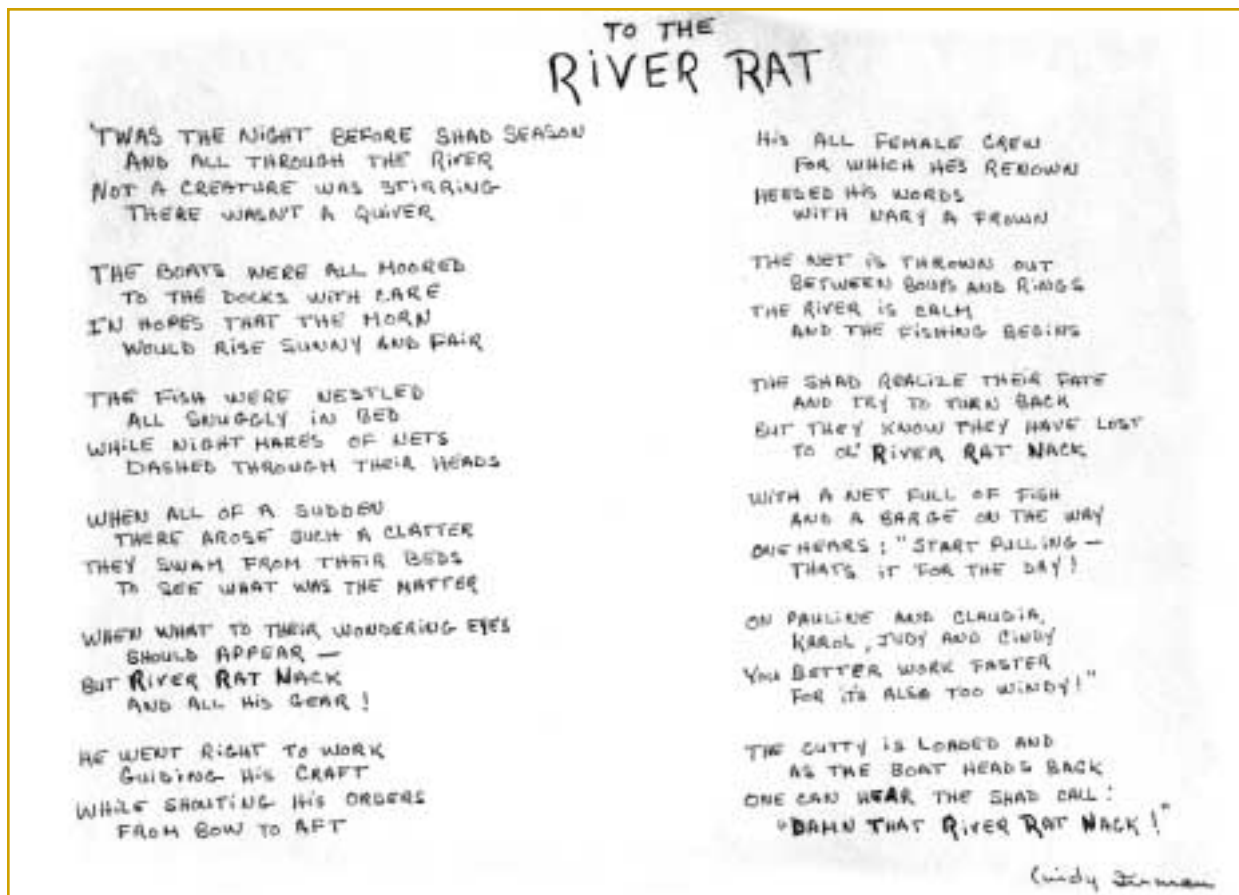 TO THE
RIVER RAT
'TWAS THE NIGHT BEFORE SHAD SEASON
AND ALL THROUGH THE RIVER
NOT A CREATURE WAS STIRRING
THERE WASN'T A QUIVER
THE BOATS WERE ALL MOORED
TO THE DOCKS WITH CARE
IN HOPES THAT THE MORN
WOULD RISE SUNNY AND FAIR
THE FISH WERE NESTLED
ALL SNUGGLY IN BED
WHILE NIGHT MARES OF NETS
DASHED THROUGH THEIR HEADS
WHEN ALL OF A SUDDEN
THERE AROSE SUCH A CLATTER
THEY SWAM FROM THEIR BEDS
TO SEE WHAT WAS THE MATTER
WHEN WHAT TO THEIR WONDERING EYES
SHOULD APPEAR —
BUT RIVER RAT NACK
AND ALL HIS GEAR!
HE WENT RIGHT TO WORK
GUIDING HIS CRAFT
WHILE SHOUTING HIS ORDERS
FROM BOW TO AFT
HIS ALL FEMALE CREW
FOR WHICH HES RENOWN
HEEDED HIS WORDS
WITH NARY A FROWN
THE NET IS THROWN OUT
BETWEEN AND RINGS
THE RIVER IS CALM
AND THE FISHING BEGINS
THE SHAD REALIZE THEIR FATE
AND TRY TO TURN BACK
BUT THEY KNOW THEY HAVE LOST
TO OL' RIVER RAT NACK
WITH A NET FULL OF FISH
AND A BARGE ON THE WAY
ONE HEARS: "START PULLING —
THATS IT FOR THE DAY!
ON PAULINE AND CLAUDIA,
KAROL, JUDY AND CINDY
YOU BETTER WORK FASTER
FOR IT'S ALSO TOO WINDY!"
THE CUTTY IS LOADED AND
AS THE BOAT HEADS BACK
ONE CAN HEAR THE SHAD CALL:
"DAMN THAT RIVER RAT NACK!"
Cindy